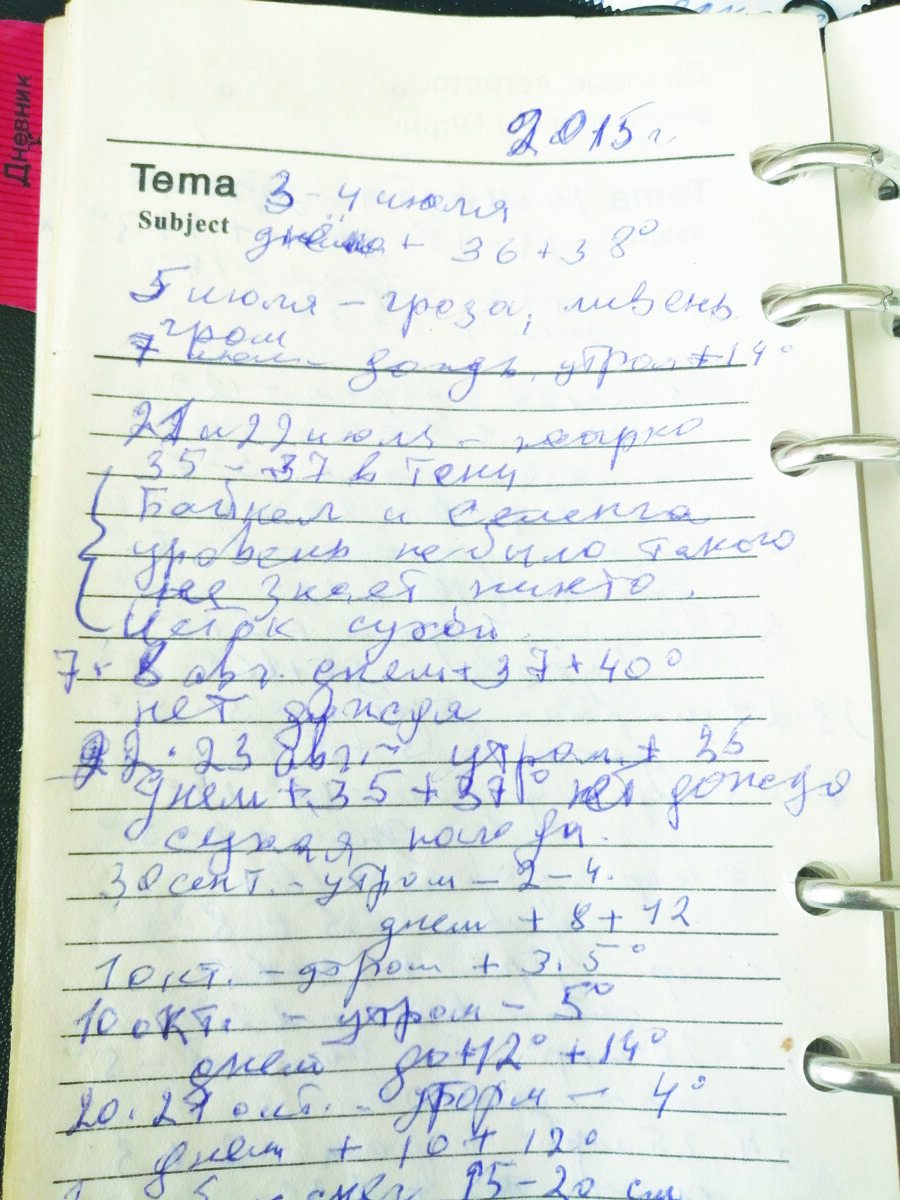 Дневник
2015 г.
Тема 3-4 июля
Subject днём + 36+38°
5 июля - гроза, ливень
гром
7 июля - дождь, утром +14°
21 и 22 июля - жарко
35-37 в тени
Байкал и Селенга
уровень не было такого
не знает никто.
Исток сухой.
7+8 авг. днем +37+40°
нет дождя
22.23 авг. - утром + 25
Днем +35+37° нет дождя
сухая погода.
30 сент. - утром - 2-4.
днем + 8+12
1 окт. - утром + 3.5°
10 окт. - утром - 5°
днем до +12° +14°
20.21 окт. - утром - 4°
днем + 10+12°
снег 15-20 см